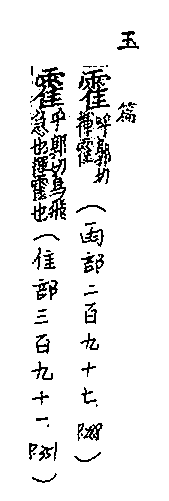 玉篇
霍呼郭切
揮霍（雨部二百九十七、P.288）
霍呼郭切鳥飛
急也揮霍也（隹部三百九十一、P.351）